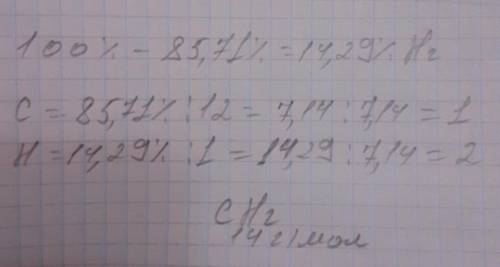 100% - 85,71% = 14,29% H2
C = 85,71% : 12 = 7,14 : 7,14 = 1
H = 14,29% : 1 = 14,29 : 7,14 = 2
CH2
14 г/мол